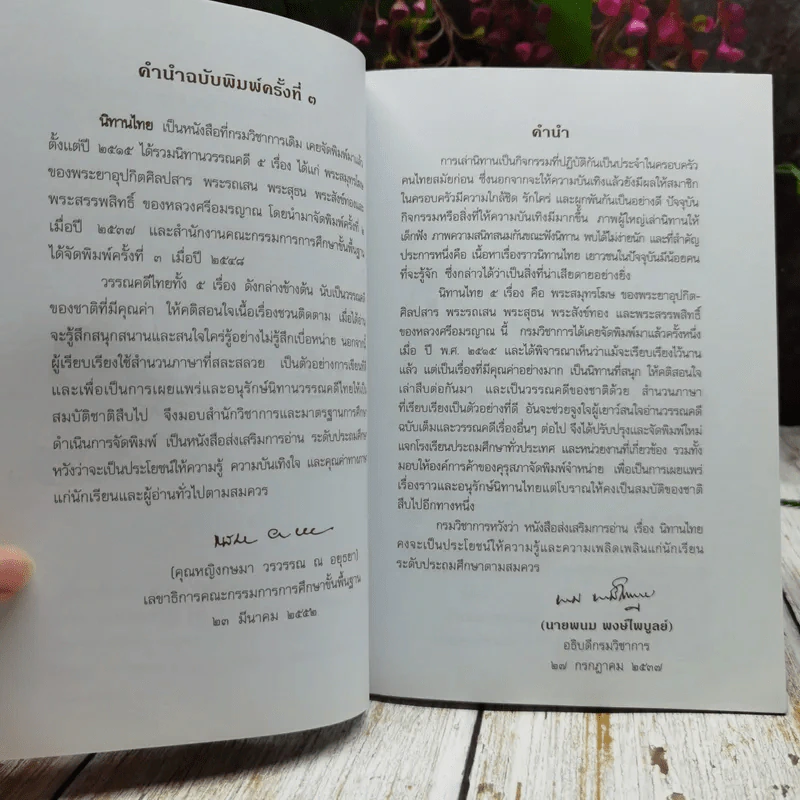 คำนำฉบับพิมพ์ครั้งที่ ๓
นิทานไทย เป็นหนังสือที่กรมวิชาการเดิม เคยจัดพิมพ์มาแล้ว
ตั้งแต่ปี ๒๕๑๕ ได้รวมนิทานวรรณคดี ๕ เรื่อง ได้แก่ พระสมุทรโฆษ
ของพระยาอุปกิตศิลปสาร พระรถเสน พระสุธน พระสังข์ทองและ
พระสรรพสิทธิ์ ของหลวงศรีอมรญาณ โดยนำมาจัดพิมพ์ครั้งที่ ๒
เมื่อปี ๒๕๓๗ และสำนักงานคณะกรรมการการศึกษาขั้นพื้นฐาน
ได้จัดพิมพ์ครั้งที่ ๓ เมื่อปี ๒๕๔๘
วรรณคดีไทยทั้ง ๕ เรื่อง ดังกล่าวข้างต้น นับเป็นวรรณคดี
ของชาติที่มีคุณค่า ให้คติสอนใจเนื้อเรื่องชวนติดตาม เมื่อได้อ่าน
จะรู้สึกสนุกสนานและสนใจใคร่รู้อย่างไม่รู้สึกเบื่อหน่าย นอกจากนี้
ผู้เรียบเรียงใช้สำนวนภาษาที่สละสลวย เป็นตัวอย่างการเขียนที่ดี
และเพื่อเป็นการเผยแพร่และอนุรักษ์นิทานวรรณคดีไทยให้เป็น
สมบัติชาติสืบไป จึงมอบสำนักวิชาการและมาตรฐานการศึกษา
ดำเนินการจัดพิมพ์ เป็นหนังสือส่งเสริมการอ่าน ระดับประถมศึกษา
หวังว่าจะเป็นประโยชน์ให้ความรู้ ความบันเทิงใจ และคุณค่าทางภาษา
แก่นักเรียนและผู้อ่านทั่วไปตามสมควร
(คุณหญิงกษมา วรวรรณ ณ อยุธยา)
เลขาธิการคณะกรรมการการศึกษาขั้นพื้นฐาน
๒๓ มีนาคม ๒๕๕๒
คำนำ
การเล่านิทานเป็นกิจกรรมที่ปฏิบัติกันเป็นประจำในครอบครัว
คนไทยสมัยก่อน ซึ่งนอกจากจะให้ความบันเทิงแล้วยังมีผลให้สมาชิก
ในครอบครัวมีความใกล้ชิด รักใคร่ และผูกพันกันเป็นอย่างดี ปัจจุบัน
กิจกรรมหรือสิ่งที่ให้ความบันเทิงมีมากขึ้น ภาพผู้ใหญ่เล่านิทานให้
เด็กฟัง ภาพความสนิทสนมกันขณะฟังนิทาน พบได้ไม่ง่ายนัก และที่สำคัญ
ประการหนึ่งคือ เนื้อหาเรื่องราวนิทานไทย เยาวชนในปัจจุบันมีน้อยคน
ที่จะรู้จัก ซึ่งกล่าวได้ว่าเป็นสิ่งที่น่าเสียดายอย่างยิ่ง
นิทานไทย ๕ เรื่อง คือ พระสมุทรโฆษ ของพระยาอุปกิต-
ศิลปสาร พระรถเสน พระสุธน พระสังข์ทอง และพระสรรพสิทธิ์
ของหลวงศรีอมรญาณ นี้ กรมวิชาการได้เคยจัดพิมพ์มาแล้วครั้งหนึ่ง
เมื่อ ปี พ.ศ. ๒๕๑๕ และได้พิจารณาเห็นว่าแม้จะเรียบเรียงไว้นาน
แล้ว แต่เป็นเรื่องที่มีคุณค่าอย่างมาก เป็นนิทานที่สนุก ให้คติสอนใจ
เล่าสืบต่อกันมา และเป็นวรรณคดีของชาติด้วย สำนวนภาษา
ที่เรียบเรียงเป็นตัวอย่างที่ดี อันจะช่วยจูงใจผู้เยาว์สนใจอ่านวรรณคดี
ฉบับเต็มและวรรณคดีเรื่องอื่นๆ ต่อไป จึงได้ปรับปรุงและจัดพิมพ์ใหม่
แจกโรงเรียนประถมศึกษาทั่วประเทศ และหน่วยงานที่เกี่ยวข้อง รวมทั้ง
มอบให้องค์การค้าของคุรุสภาจัดพิมพ์จำหน่าย เพื่อเป็นการเผยแพร่
เรื่องราวและอนุรักษ์นิทานไทยแต่โบราณให้คงเป็นสมบัติของชาติ
สืบไปอีกทางหนึ่ง
กรมวิชาการหวังว่า หนังสือส่งเสริมการอ่าน เรื่อง นิทานไทย
คงจะเป็นประโยชน์ให้ความรู้และความเพลิดเพลินแก่นักเรียน
ระดับประถมศึกษาตามสมควร
(นายพนม พงษ์ไพบูลย์)
อธิบดีกรมวิชาการ
๒๗ กรกฎาคม ๒๕๓๗